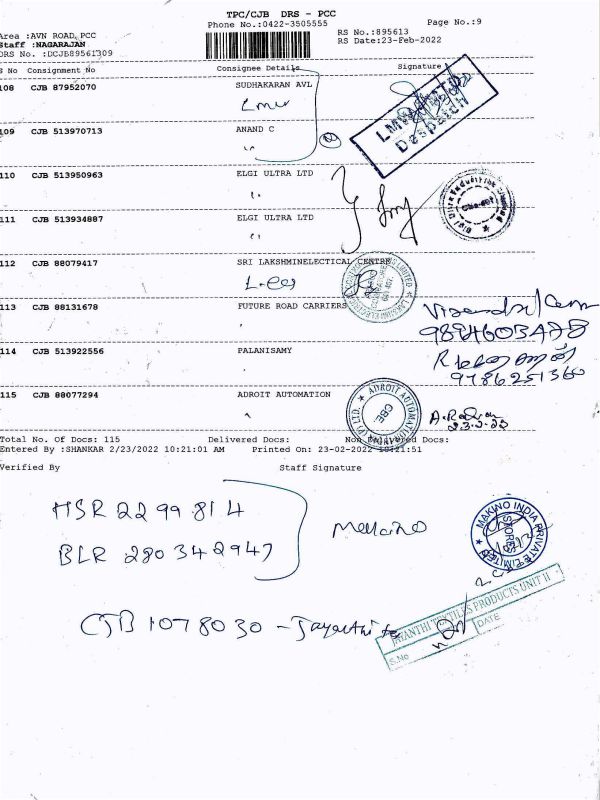 TPC/CJB DRS - PCC
Phone No.:0422-3505555
Page No.:9
Area :AVN ROAD, PCC
RS No.:895613
Staff :NAGARAJAN
RS Date:23-Feb-2022
DRS No. :DCJB89561309
S No Consignment No Consignee Details Signature
108 CJB 87952070 SUDHAKARAN AVL
Lmw
LMW LIMITED
Despatch
109 CJB 513970713 ANAND C
110 CJB 513950963 ELGI ULTRA LTD
111 CJB 513934887 ELGI ULTRA LTD
112 CJB 88079417 SRI LAKSHMINELECTICAL CENTRE
113 CJB 88131678 FUTURE ROAD CARRIERS
9894603478
114 CJB 513922556 PALANISAMY
9786251360
115 CJB 88077294 ADROIT AUTOMATION
ADROIT AUTOMATION (P) LTD.
CBE
Total No. Of Docs: 115 Delivered Docs: Non Delivered Docs:
Entered By :SHANKAR 2/23/2022 10:21:01 AM Printed On: 23-02-2022 10:21:51
Verified By Staff Signature
HSR 2299814
Makino
BLR 280342947
MAKINO INDIA PRIVATE LIMITED
STORES
CJB 1078030 - Jayanthi tx
JAYANTHI TEXTILES PRODUCTS UNIT II
S.No DATE